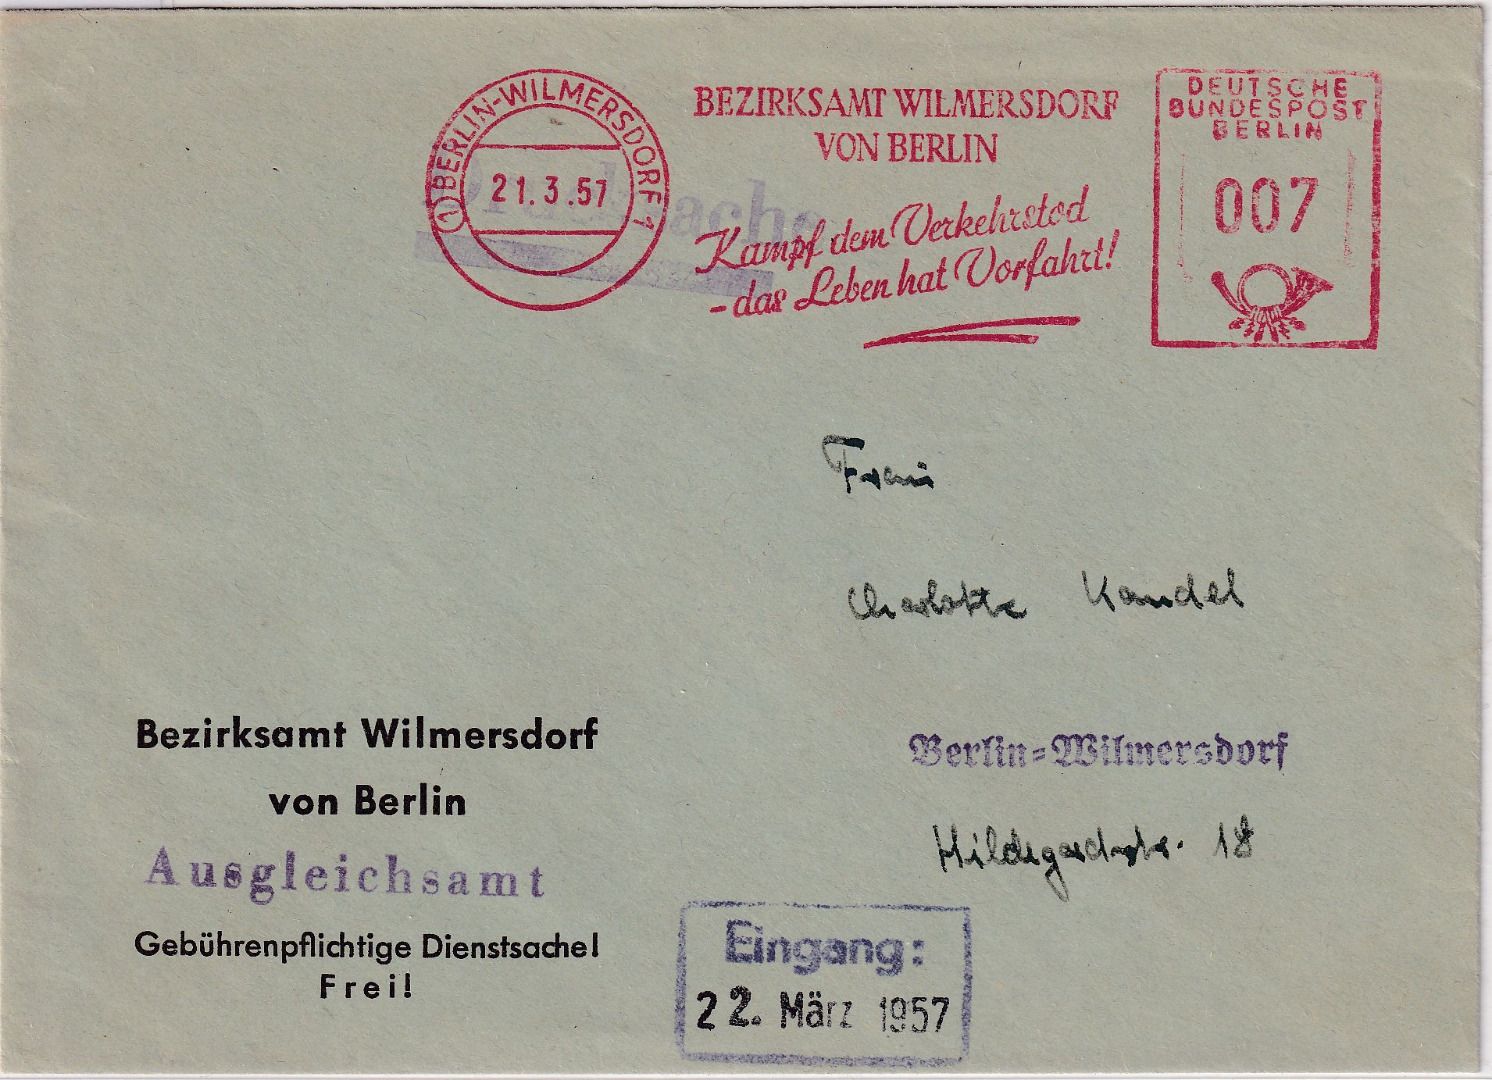 BERLIN-WILMERSDORF 1
1
21.3.57
Drucksache
BEZIRKSAMT WILMERSDORF
VON BERLIN
Kampf dem Verkehrstod
- das Leben hat Vorfahrt!
DEUTSCHE
BUNDESPOST
BERLIN
007
Frau
Charlotte Kandel
Berlin=Wilmersdorf
Hildegardstr. 18
Bezirksamt Wilmersdorf
von Berlin
Ausgleichsamt
Gebührenpflichtige Dienstsache!
Frei!
Eingang:
22. März 1957